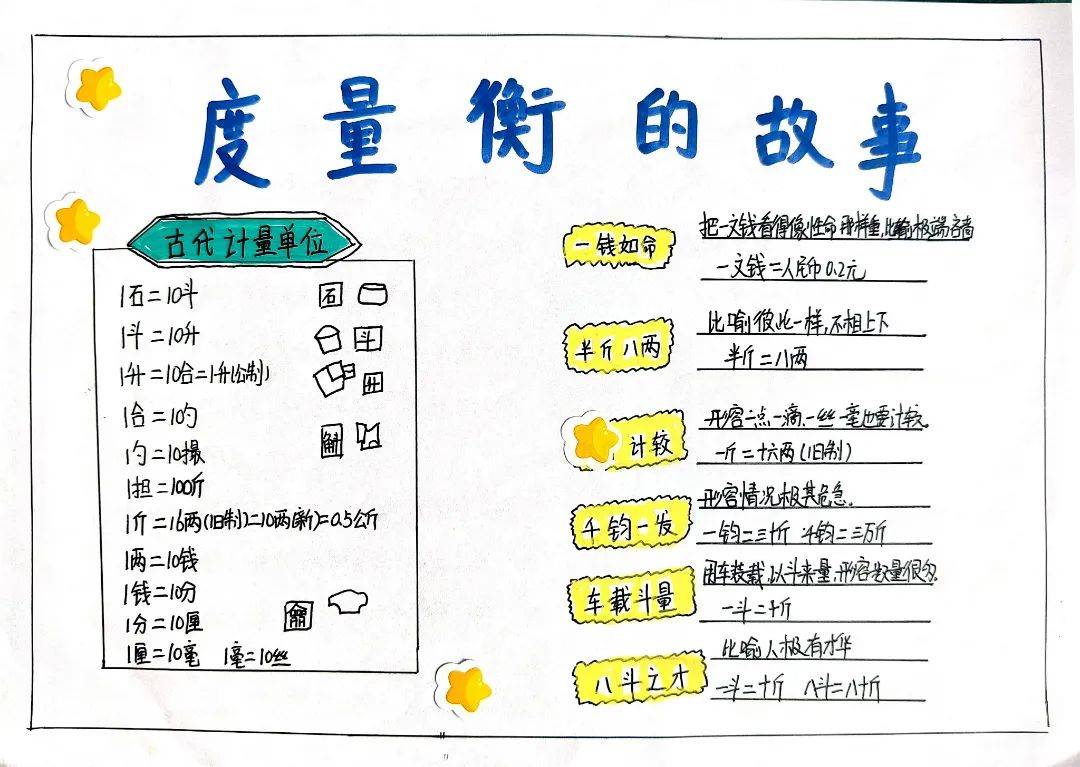 度量衡的故事
古代计量单位
1石=10斗
石
1斗=10升
斗
1升=10合=1升(公制)
升
1合=10勺
斛
1勺=10撮
1担=100斤
1斤=16两(旧制)=10两(新)=0.5公斤
1两=10钱
1钱=10分
1分=10厘
1厘=10毫 1毫=10丝
一钱如命
把一文钱看得像性命那样重,比喻极端吝啬
一文钱=人民币0.2元
半斤八两
比喻彼此一样,不相上下
半斤=八两
计较
形容一点一滴、一丝一毫也要计较
一斤=十六两(旧制)
千钧一发
形容情况极其危急.
一钧=三十斤 千钧=三万斤
车载斗量
用车装载,以斗来量,形容数量很多.
一斗=十斤
八斗之才
比喻人极有才华
一斗=十斤 八斗=八十斤